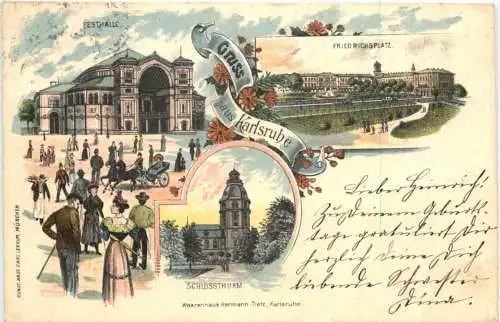 FESTHALLE.
Gruss
aus
Karlsruhe
FRIEDRICHSPLATZ.
SCHLOSSTHURM
Warenhaus Hermann Tietz, Karlsruhe.
MÜNCHEN
Lieber Heinrich!
Zu Deinem Geburts-
tage gratuliert Dir
herzlich Deine Dich
liebende Schwester